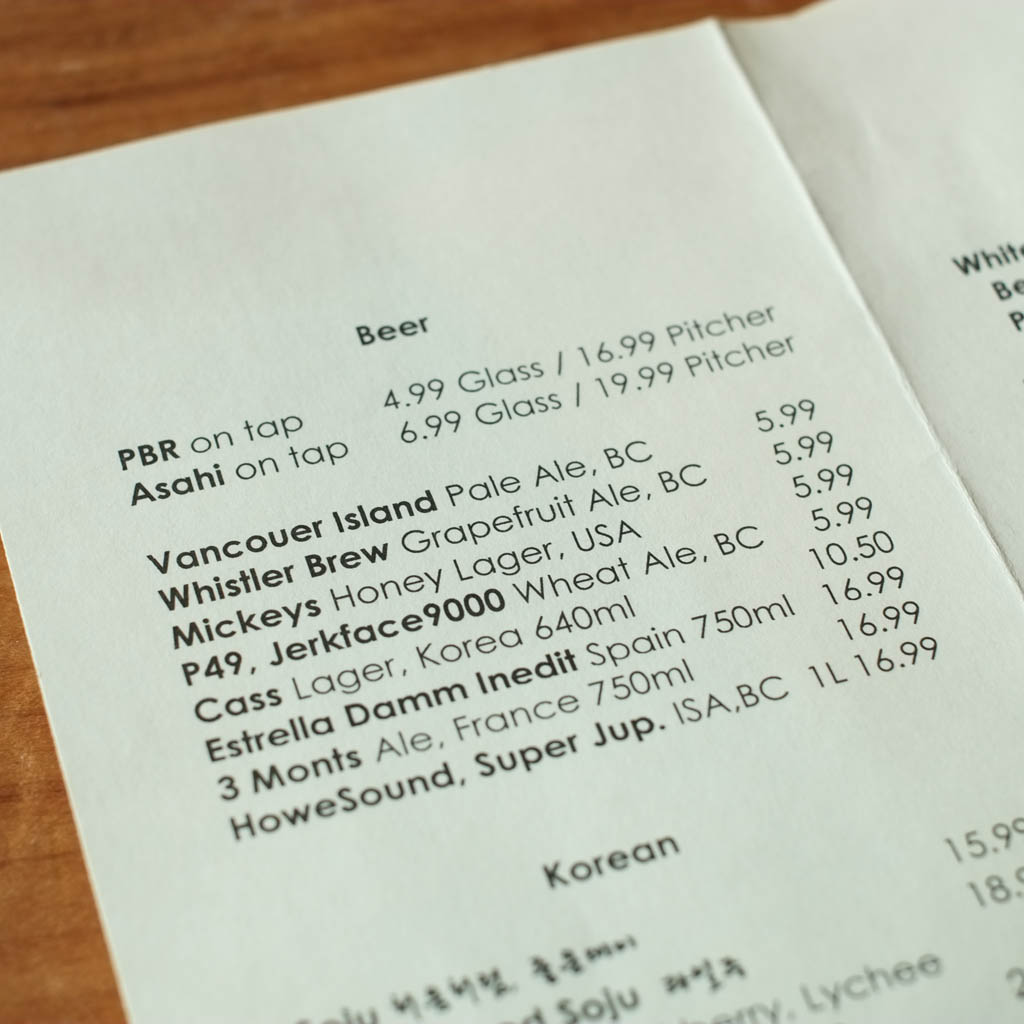 Beer
PBR on tap 4.99 Glass / 16.99 Pitcher
Asahi on tap 6.99 Glass / 19.99 Pitcher
Vancouer Island Pale Ale, BC 5.99
Whistler Brew Grapefruit Ale, BC 5.99
Mickeys Honey Lager, USA 5.99
P49, Jerkface9000 Wheat Ale, BC 5.99
Cass Lager, Korea 640ml 10.50
Estrella Damm Inedit Spain 750ml 16.99
3 Monts Ale, France 750ml 16.99
HoweSound, Super Jup. ISA,BC 1L 16.99
Korean
Soju 15.99
Soju 과일주
Lychee
White